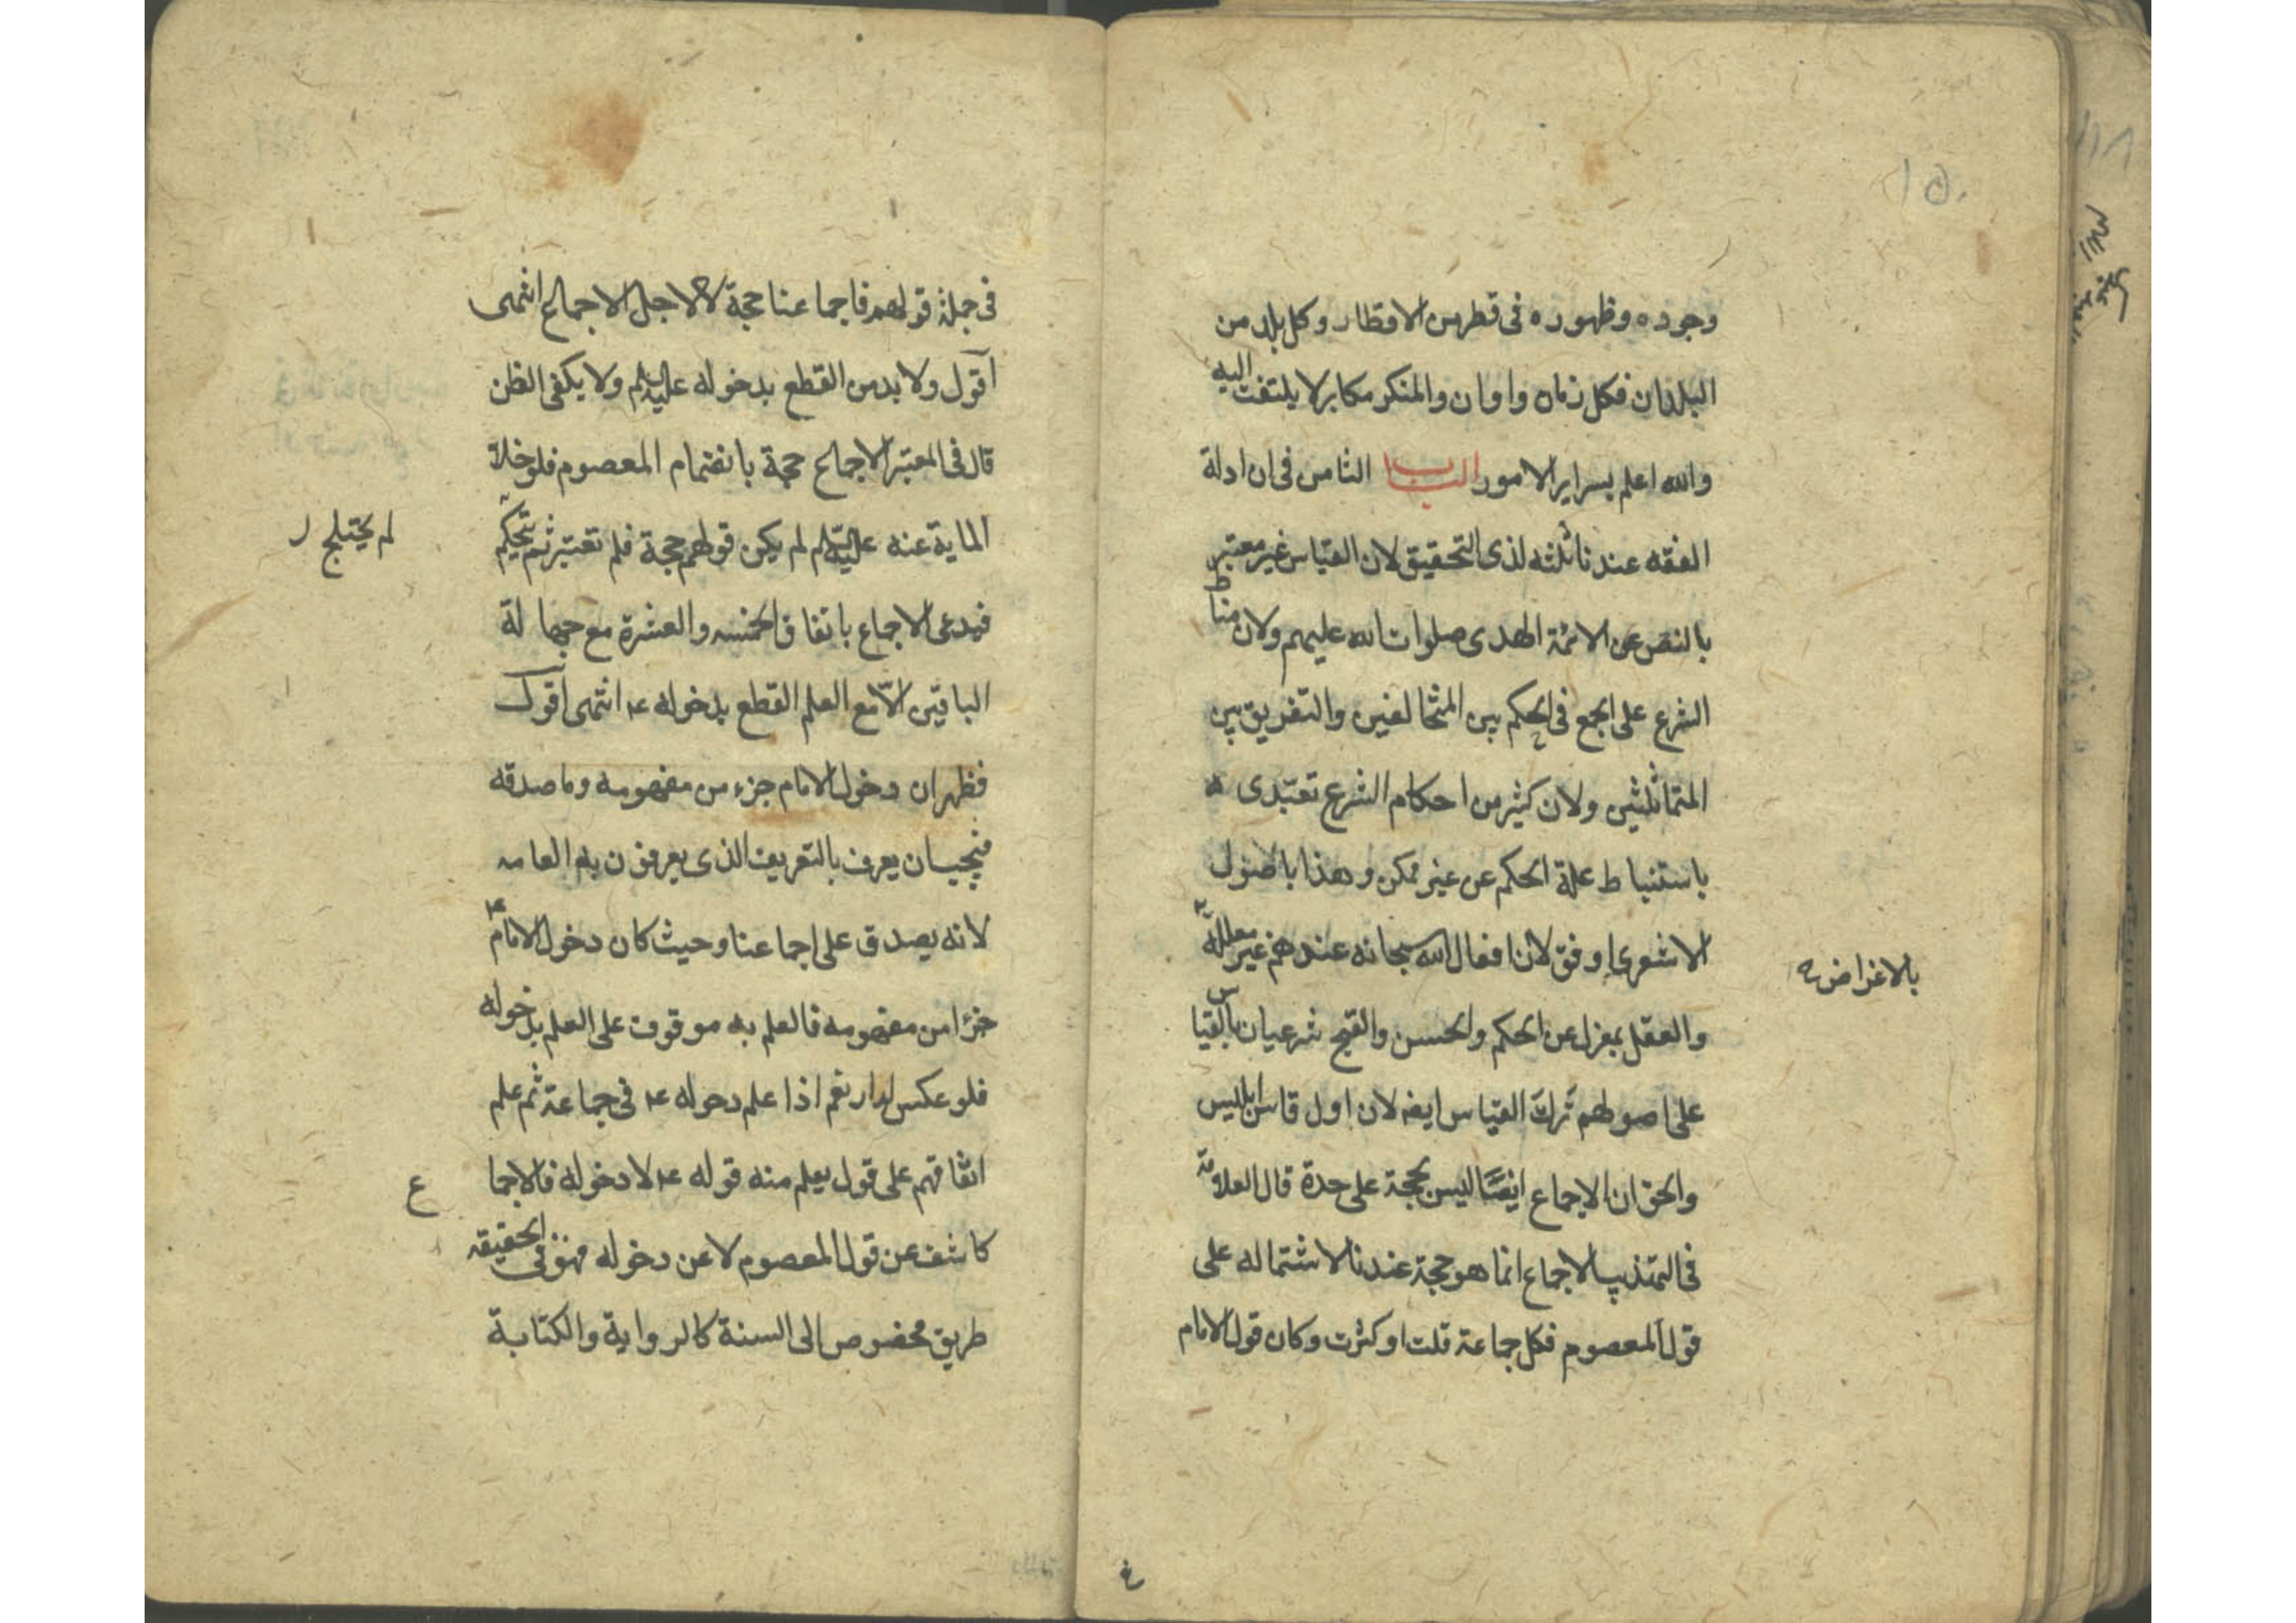 ١٥٠
وجوده وظهوره فى قطر من الاقطار وكل بلد من
البلدان فكل زمان واوان والمنكر مكابر لا يلتفت اليه
والله اعلم بسراير الامور الباب الثامن فى ان ادلة
الفقه عندنا ثلثه لذى التحقيق لان القياس غير معتبر
بالنص عن الائمة الهدى صلوات الله عليهم ولان مناط
الشرع على الجمع فى الحكم بين المتخالفين والتفريق بين
المتماثلثين ولان كثير من احكام الشرع تعبّدى
باستنباط علة الحكم عن غير ممكن وهذا باصول
الاشعرى اوفق لان افعال الله سبحانه عندهم غير معللة
بالاغراض
والعقل بمعزل عن الحكم والحسن والقبح شرعيان بالقياس
على اصولهم ترك القياس ايضه لان اول قاس ابليس
والحق ان الاجماع ايضًا ليس بحجة على حدة قال العلامة
فى التهذيب الاجماع انما هو حجة عندنا لاشتماله على
قول المعصوم فكل جماعة قلت او كثرت وكان قول الامام
فى جملة قولهم فاجماعنا حجة لاجله لا لاجل الاجماع انتهى
اقول ولا بد من القطع بدخوله عليه السلم ولا يكفى الظن
قال فى المعتبر الاجماع حجة بانضمام المعصوم فلو خلا
الماية عنه عليه السلم لم يكن قولهم حجة فلم تعتبر ثم يتحكم
لم يحتج
فيدعى الاجماع باتفاق الخمسه والعشرة مع جهالة
الباقين الّا مع العلم القطع بدخوله ع انتهى اقول
فظهر ان دخول الامام جزء من مفهومه وما صدقه
فيجب ان يعرف بالتعريف الذى يعرفون به العامه
لانه يصدق على اجماعنا وحيث كان دخول الامام ع
جزءا من مفهومه فالعلم به موقوف على العلم بدخوله
فلو عكس لدار نعم اذا علم دحوله ع فى جماعة ثم علم
اتفاقهم على قول يعلم منه قوله ع لا دخوله فالاجما
ع
كاشف عن قول المعصوم لا عن دخوله فهو فى الحقيقه
طريق مخصوص الى السنة كالرواية والكتابة